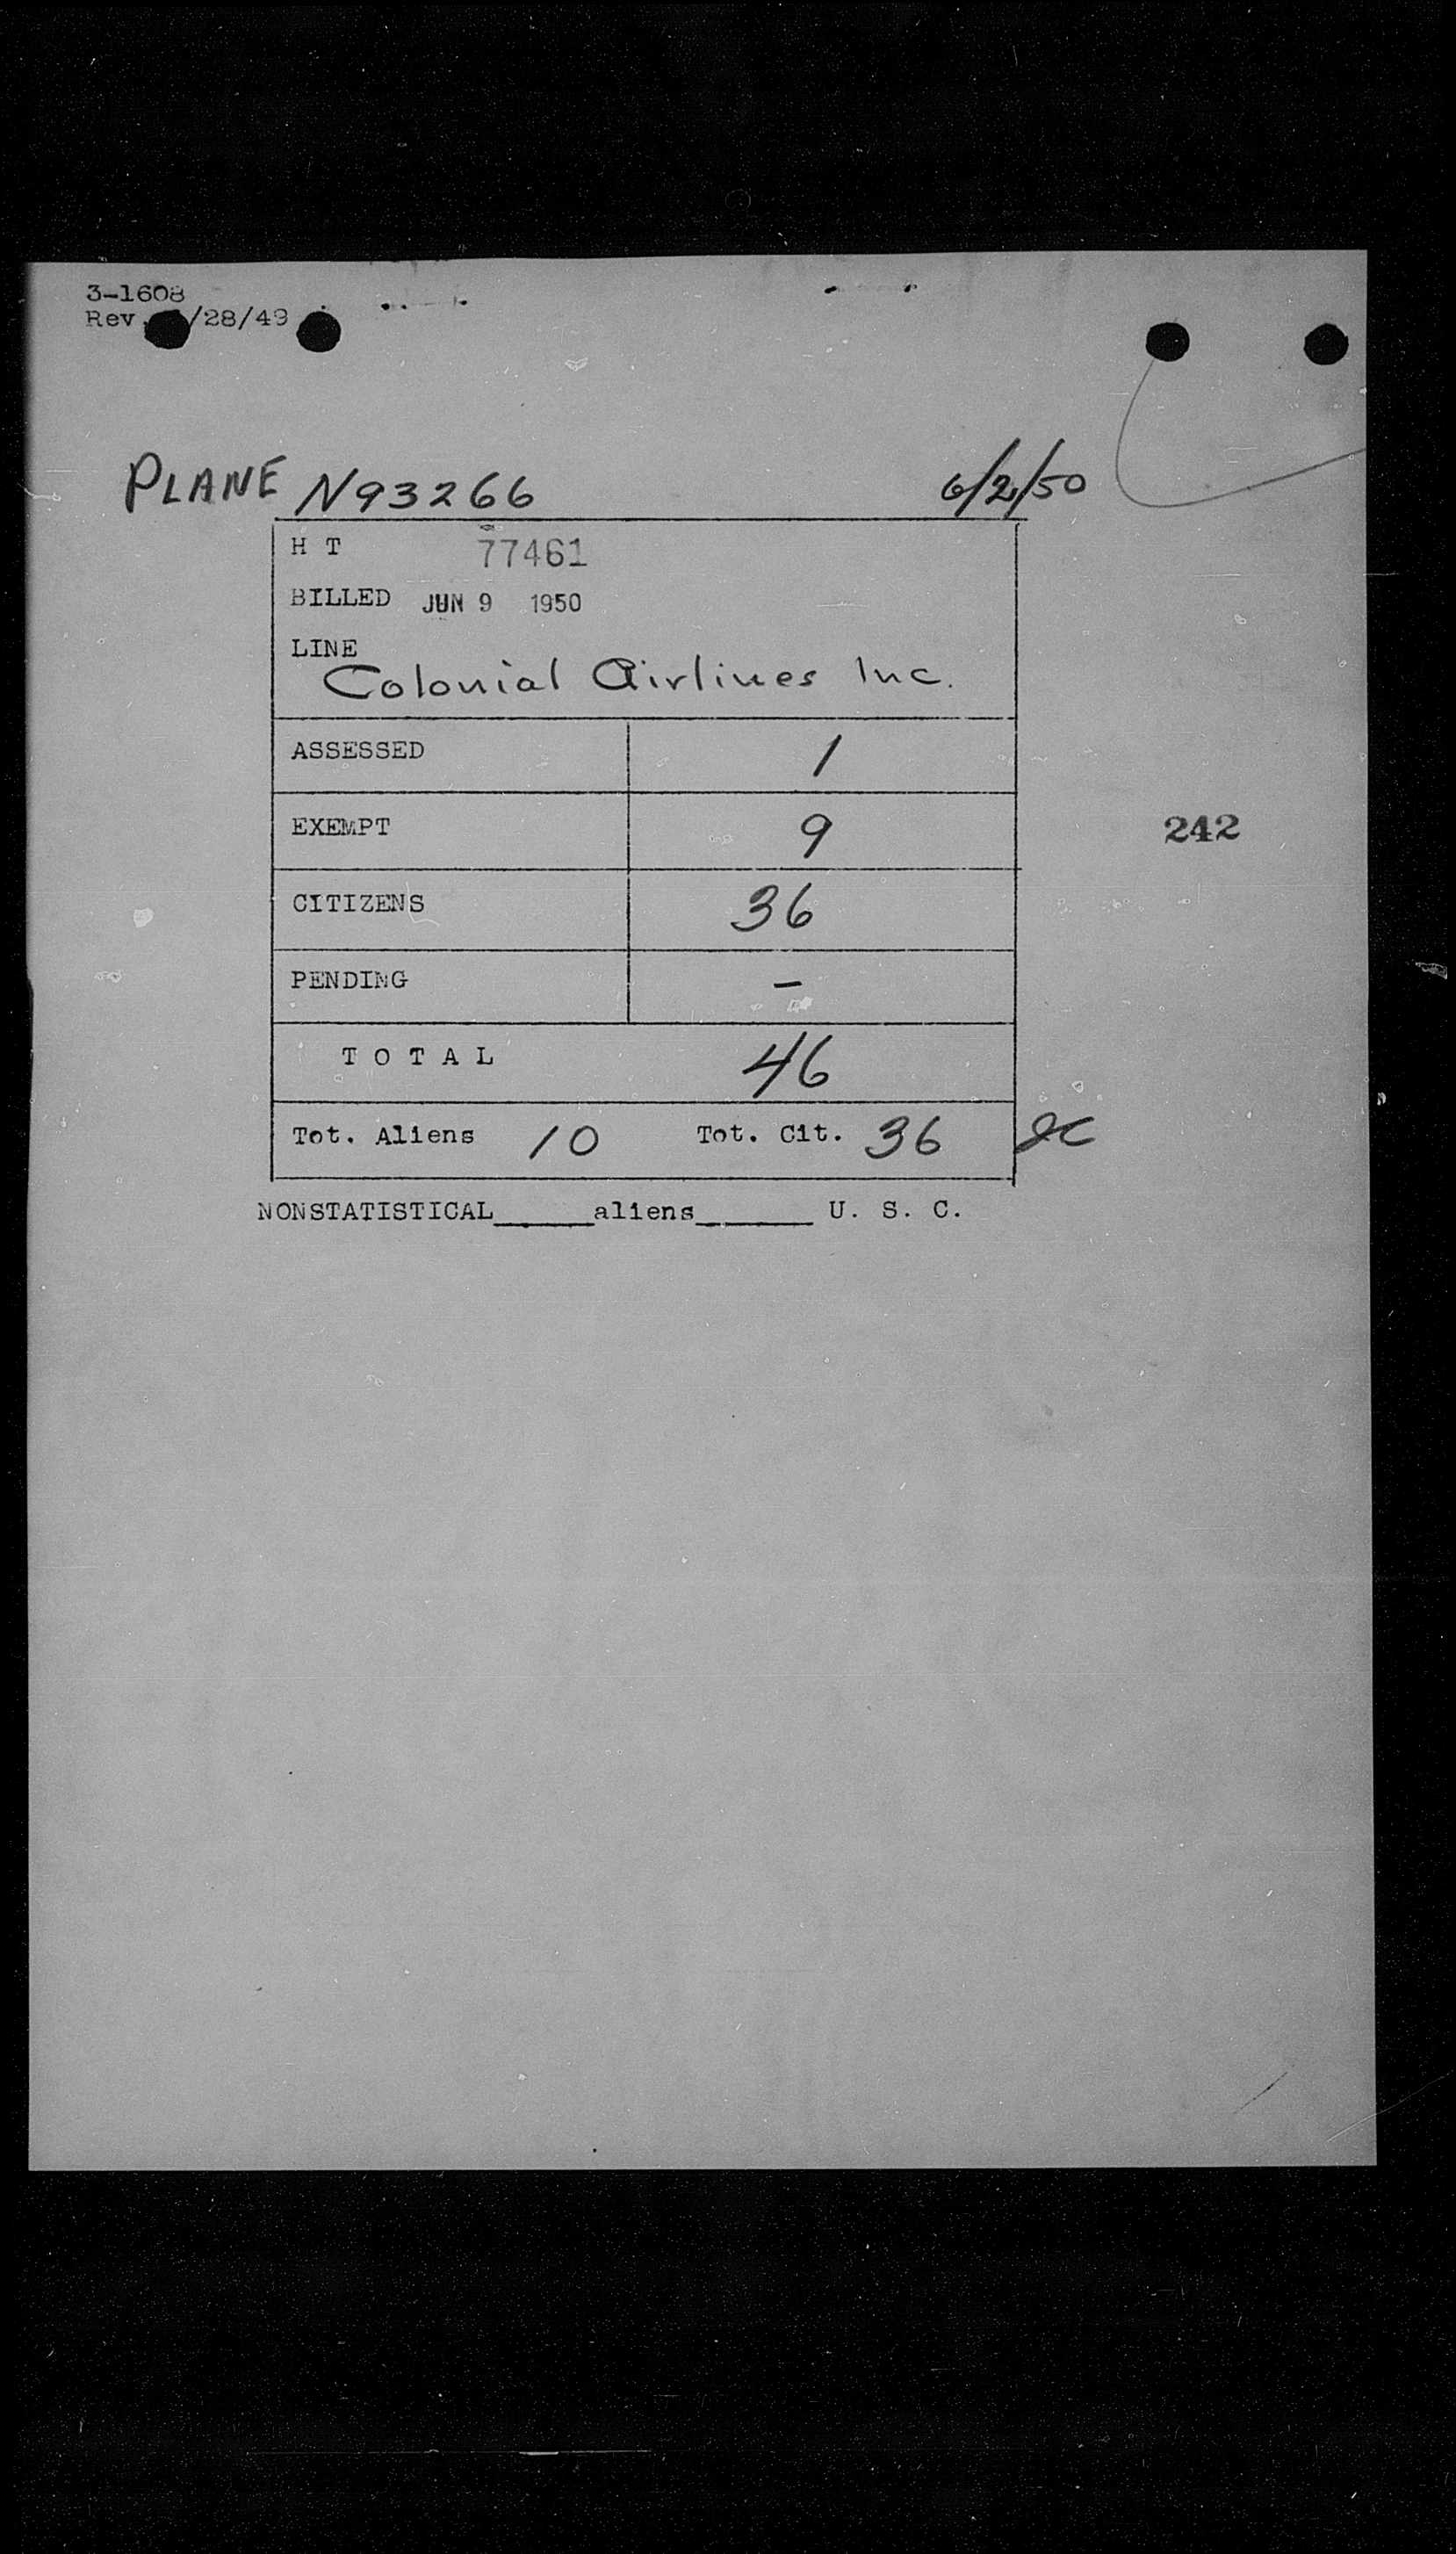 3-1608
Rev. /28/49
PLANE N93266 6/2/50
H T 77461
BILLED JUN 9 1950
LINE
Colonial Airlines Inc.
ASSESSED 1
EXEMPT 9
242
CITIZENS 36
PENDING –
T O T A L 46
Tot. Aliens 10 Tot. Cit. 36
NONSTATISTICAL______aliens_______ U. S. C.